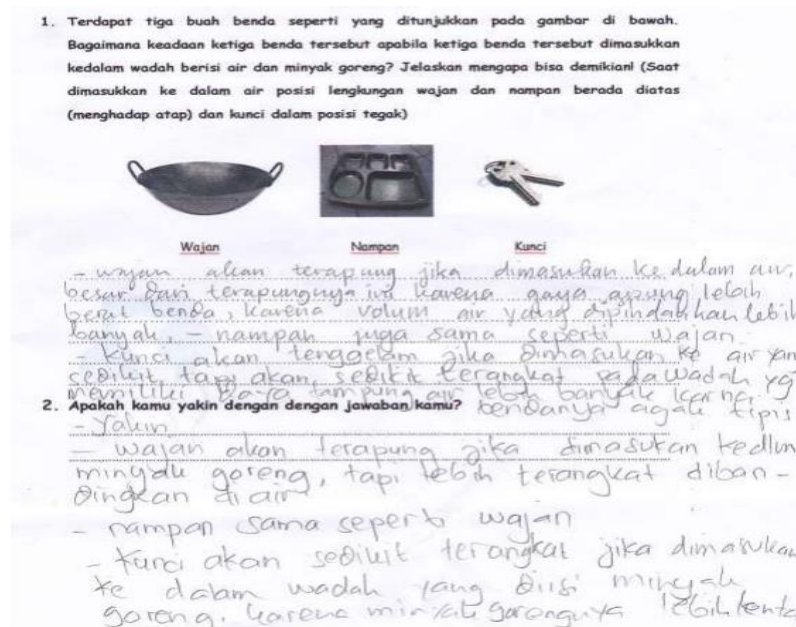 1. Terdapat tiga buah benda seperti yang ditunjukkan pada gambar di bawah.
Bagaimana keadaan ketiga benda tersebut apabila ketiga benda tersebut dimasukkan
kedalam wadah berisi air dan minyak goreng? Jelaskan mengapa bisa demikian! (Saat
dimasukkan ke dalam air posisi lengkungan wajan dan nampan berada diatas
(menghadap atap) dan kunci dalam posisi tegak)
Wajan Nampan Kunci
- wajan akan terapung jika dimasukan ke dalam air,
besar dari terapungnya karena gaya apung lebih
berat benda, karena volum air yang dipindahkan lebih
banyak, - nampan juga sama seperti wajan
- kunci akan tenggelam jika dimasukan ke air yan
sedikit, tapi akan sedikit terangkat pada wadah yg
memiliki daya tampung air lebih banyak karna
2. Apakah kamu yakin dengan dengan jawaban kamu? bendanya agak tipis
- Yakin
- wajan akan terapung jika dimasukan kedlm
minyak goreng, tapi lebih terangkat diban-
dingkan di air
- nampan sama seperti wajan
- kunci akan sedikit terangkat jika dimasukan
ke dalam wadah yang diisi minyak
goreng. karena minyak gorengnya lebih